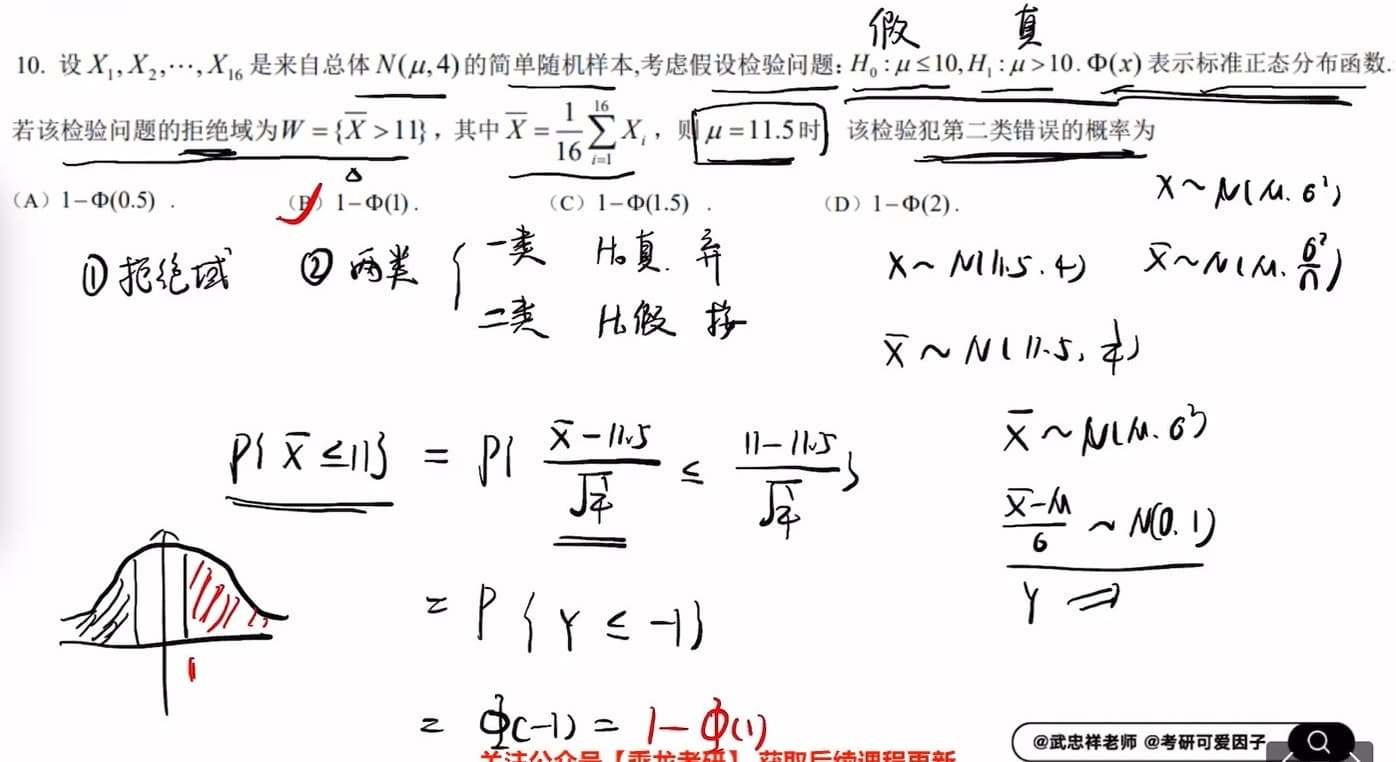 假 真
10. 设 X₁, X₂, ⋯, X₁₆ 是来自总体 N(μ, 4) 的简单随机样本,考虑假设检验问题: H₀ : μ ≤ 10, H₁ : μ > 10. Φ(x) 表示标准正态分布函数.
若该检验问题的拒绝域为 W = {X̄ > 11}，其中 X̄ = 1/16 ∑_{i=1}^{16} Xᵢ，则 μ = 11.5 时 该检验犯第二类错误的概率为
（A）1−Φ(0.5) . （B）1−Φ(1). （C）1−Φ(1.5) . （D）1−Φ(2).
X ~ N(μ. σ²)
① 拒绝域 ② 两类 { 一类 H₀真. 弃
二类 H₀假 接
X ~ N(11.5. 4) X̄ ~ N(μ. σ²/n)
X̄ ~ N(11.5, 1/4)
X̄ ~ N(μ. σ²)
P{X̄ ≤ 11} = P{ (X̄ − 11.5)/√(1/4) ≤ (11 − 11.5)/√(1/4) }
(X̄−μ)/σ ~ N(0. 1)
Y ⇒
= P{Y ≤ −1}
1
= Φ(−1) = 1−Φ(1)
关注公众号【乘龙考研】获取后续课程更新
@武忠祥老师 @考研可爱因子